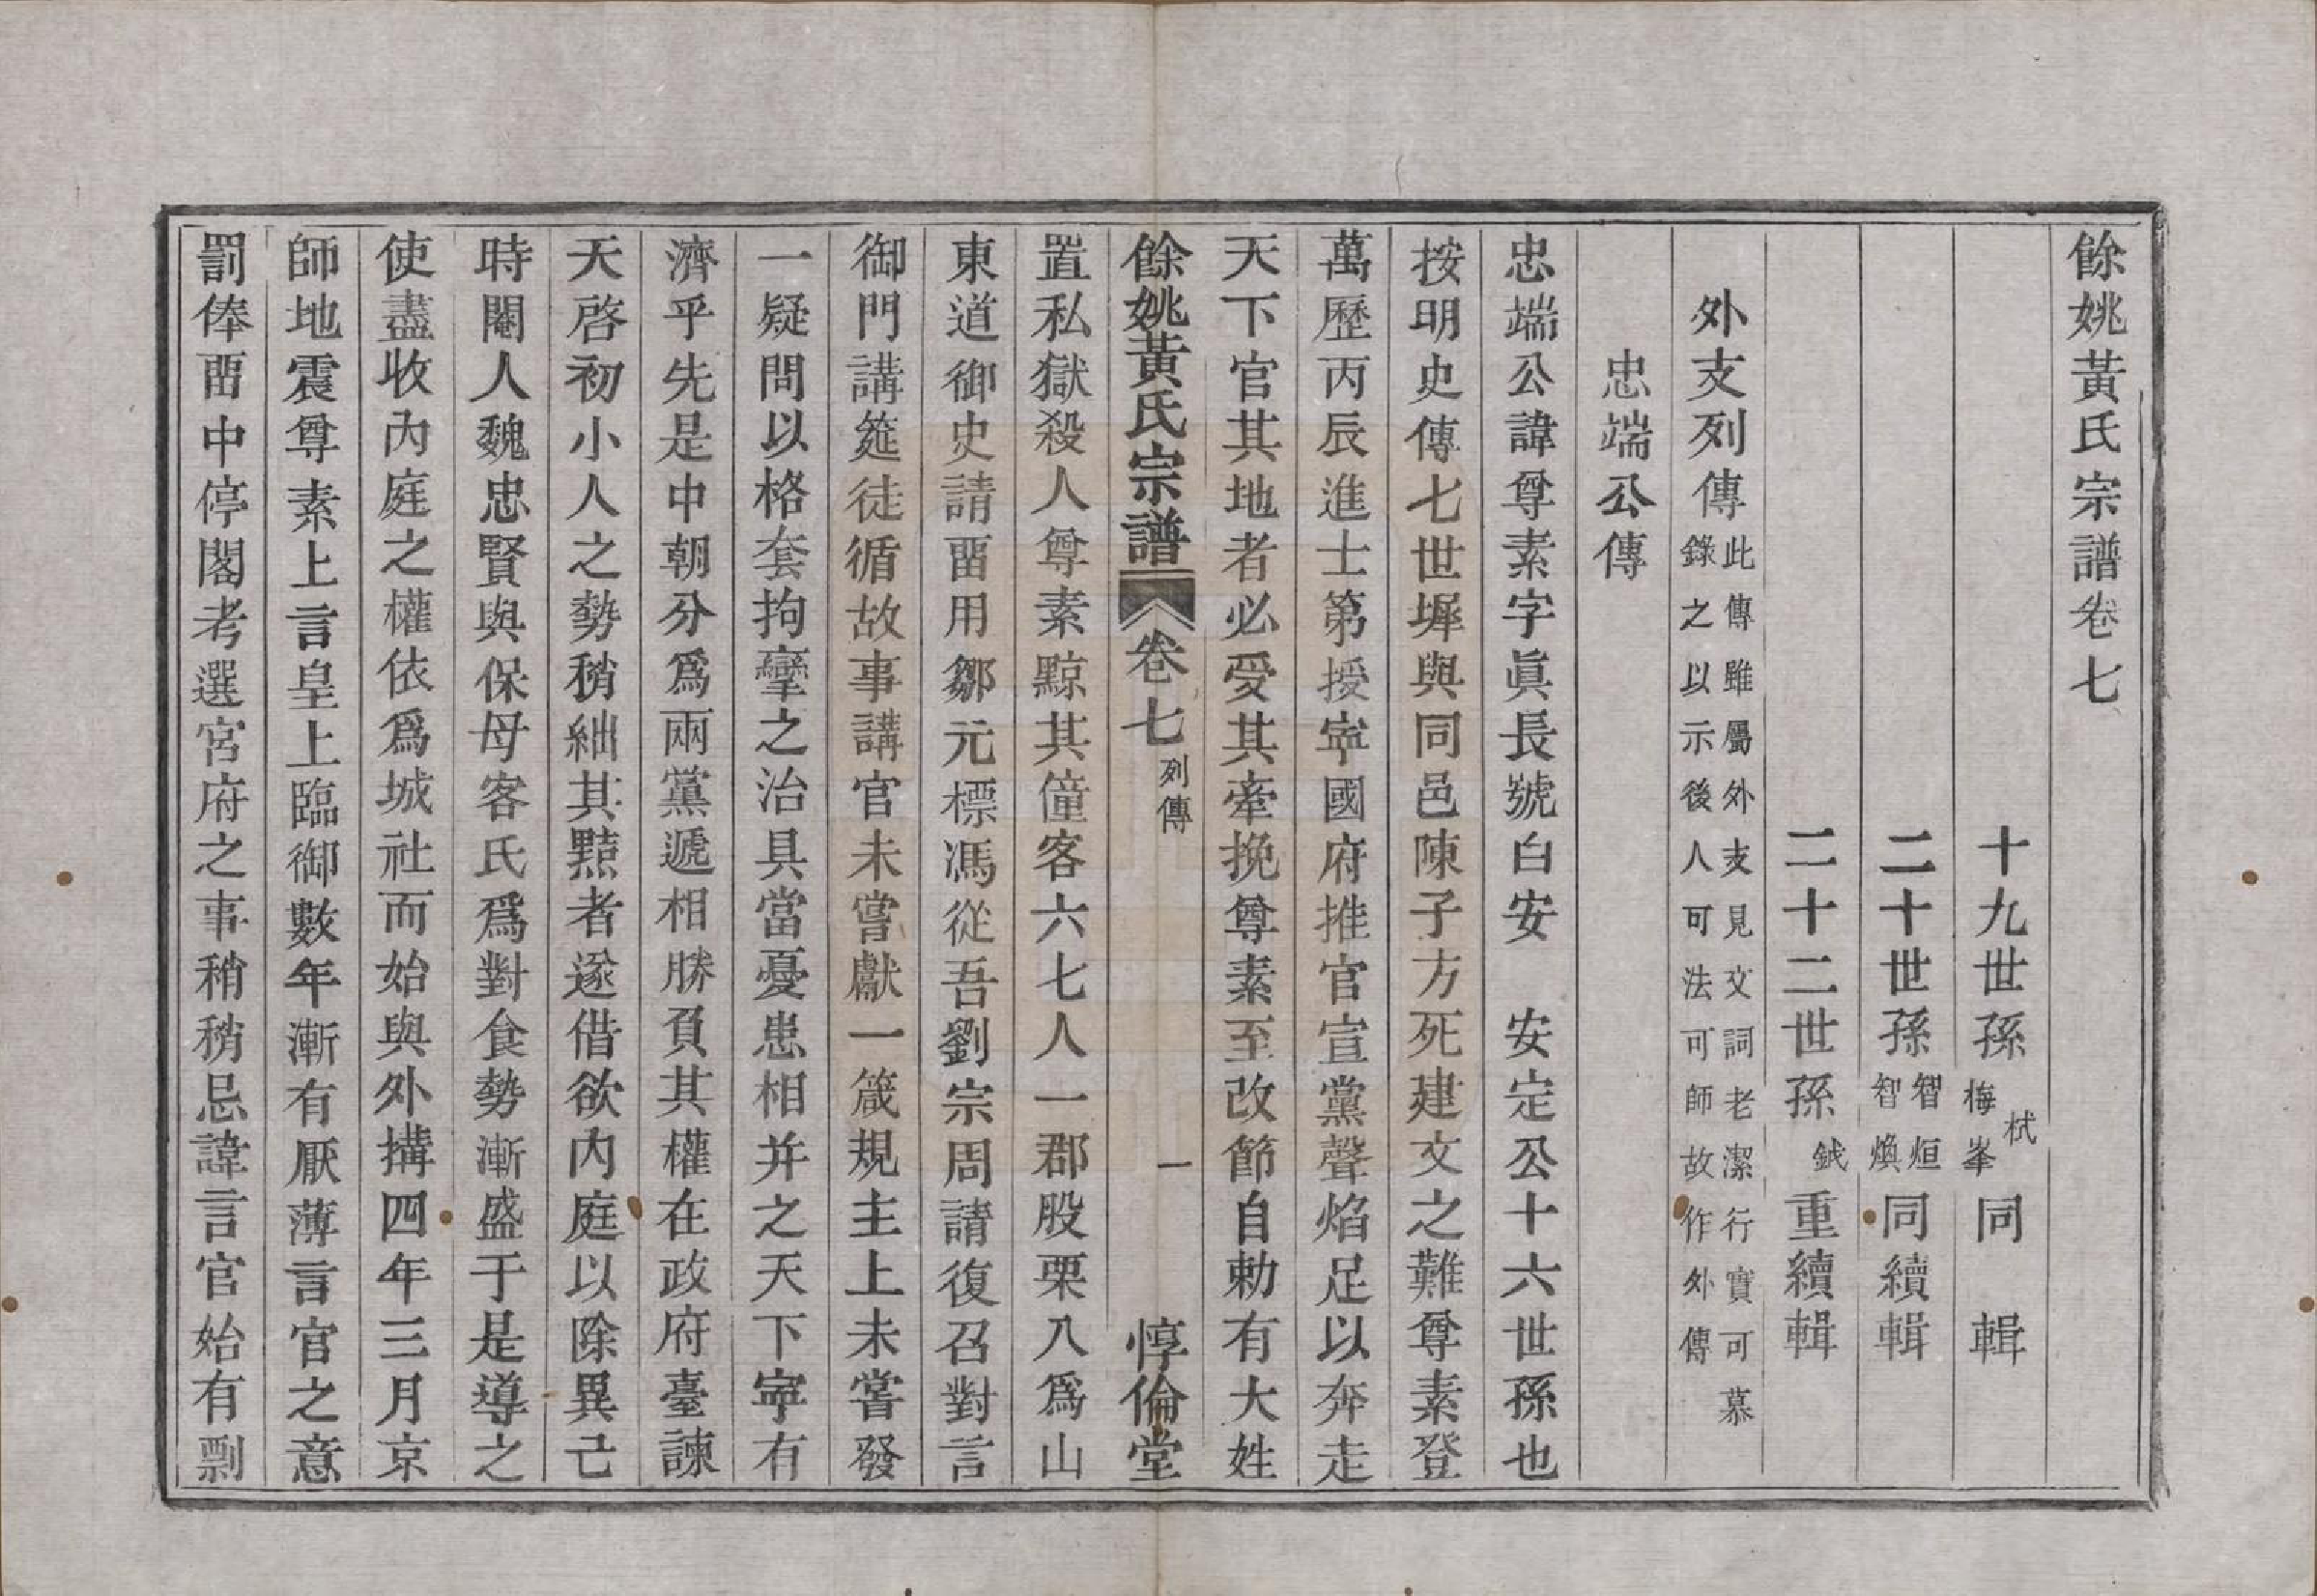 餘姚黃氏宗譜卷七
十九世孫梅峯栻同輯
二十世孫智烜智煥同續輯
二十二世孫鉞重續輯
外支列傳此傳雖屬外支見文詞老潔行實可慕
錄之以示後人可法可師故作外傳
忠端公傳
忠端公諱尊素字眞長號白安　安定公十六世孫也
按明史傳七世墀與同邑陳子方死建文之難尊素登
萬歷丙辰進士第授寜國府推官宣黨聲焰足以奔走
天下官其地者必受其牽挽尊素至改節自勅有大姓
餘姚黃氏宗譜　卷七　列傳　一　惇倫堂
置私獄殺人尊素黥其僮客六七人一郡股栗入爲山
東道御史請畱用鄒元標馮從吾劉宗周請復召對言
御門講筵徒循故事講官未嘗獻一箴規主上未嘗發
一疑問以格套拘攣之治具當憂患相幷之天下寜有
濟乎先是中朝分爲兩黨遞相勝負其權在政府臺諫
天啓初小人之勢稍絀其黠者遂借欲內庭以除異己
時閹人魏忠賢與保母客氏爲對食勢漸盛于是導之
使盡收內庭之權依爲城社而始與外搆四年三月京
師地震尊素上言皇上臨御數年漸有厭薄言官之意
罰俸畱中停閣考選宮府之事稍稍忌諱言官始有剽